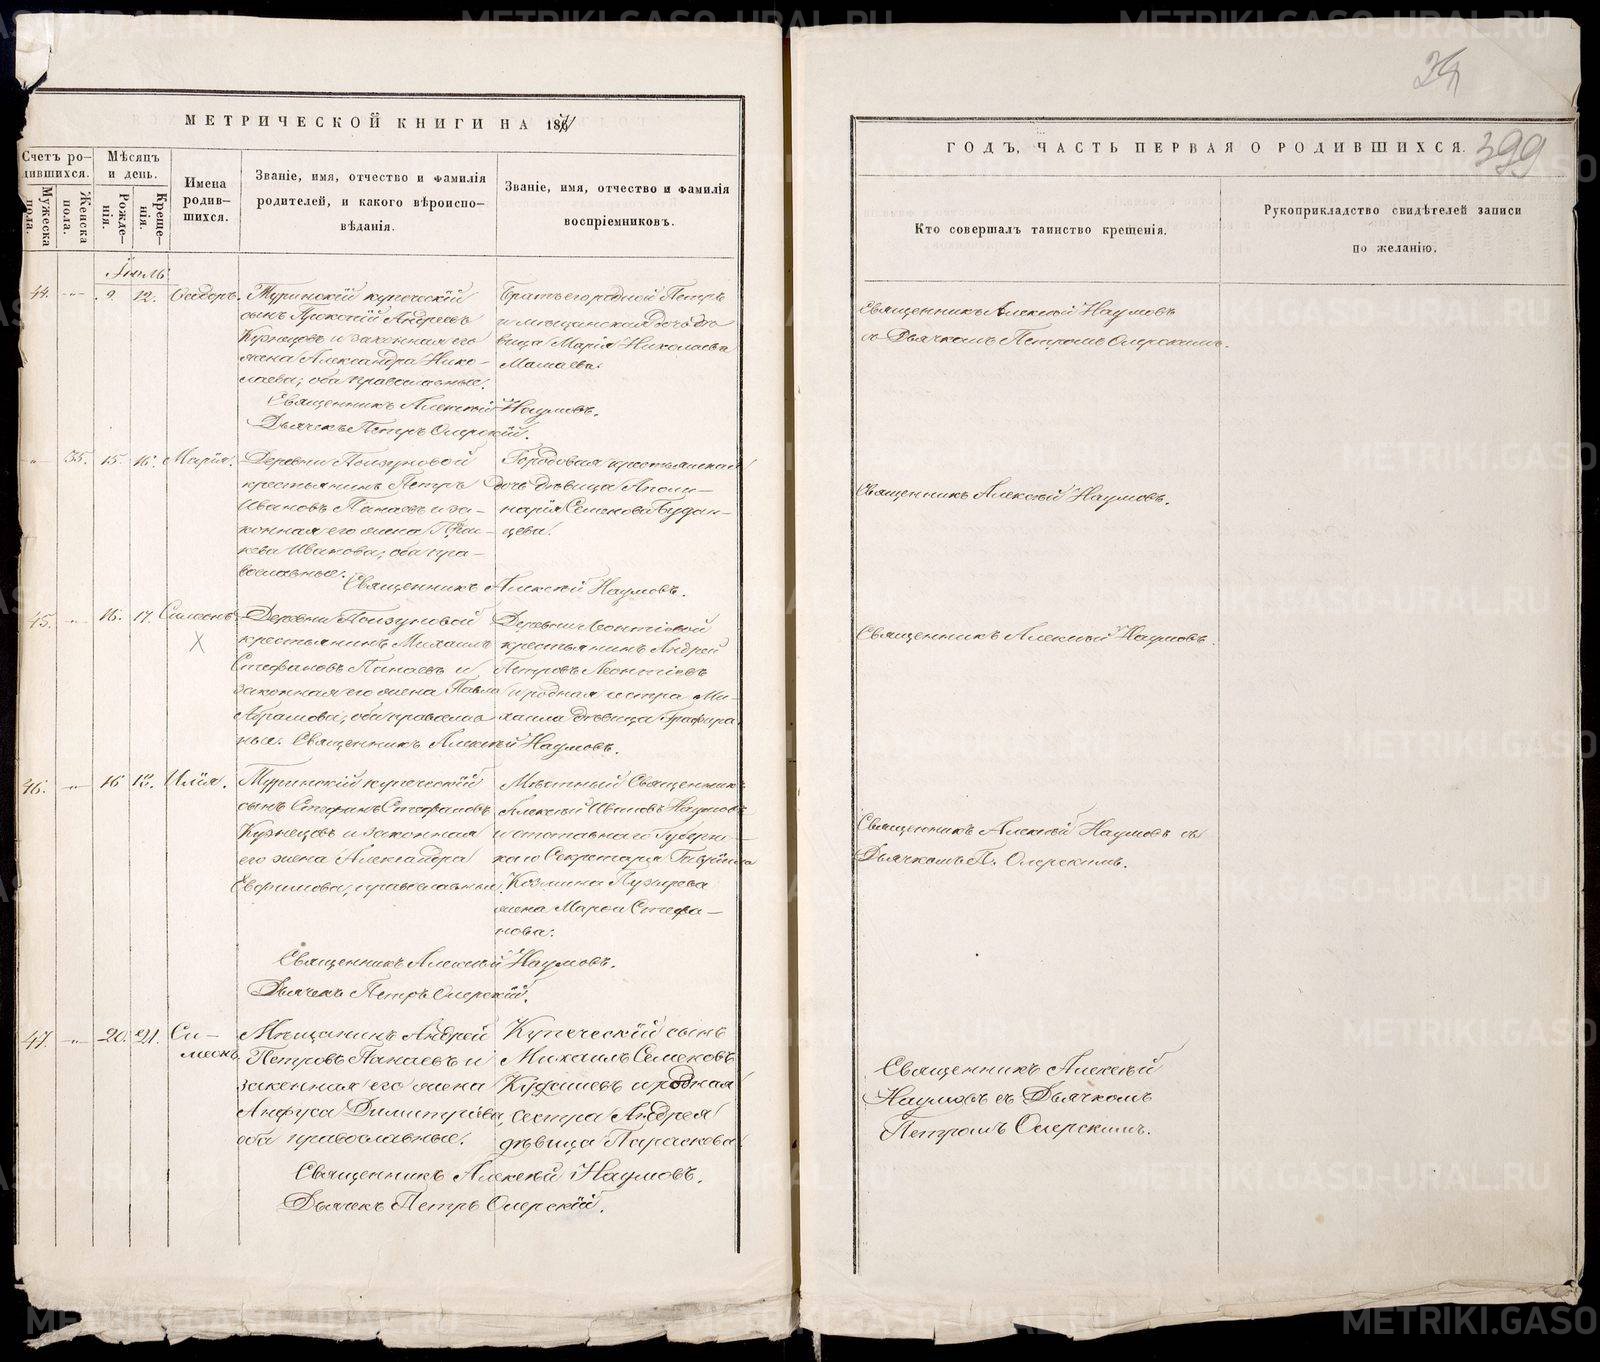 МЕТРИЧЕСКОЙ КНИГИ НА 186
Счетъ родившихся.
Мужеска пола.
Женска пола.
Мѣсяцъ и день.
Рожденія.
Крещенія.
Имена родившихся.
Званіе, имя, отчество и фамилія
родителей, и какого вѣроиспо-
вѣданія.
Званіе, имя, отчество и фамилія
воспріемниковъ.
44. 9. 12.
Туринскій купеческій
сынъ Прокопій Андреевъ
Кузнецовъ и законная его
жена Александра Нико-
лаева; оба православные.
Братъ его родной Петръ
и мѣщанская дочь дѣ
вица Марія Николаева
Мамаева.
Священникъ Алексѣй Наумовъ.
Дьячекъ Петръ Озерскій.
35. 15. 16. Марія.
Деревни
крестьянинъ Петръ
Ивановъ Панаевъ и за-
конная его жена
Иванова; оба пра-
вославные.
крестьянская
дочь дѣвица Аполи-
нарія Семенова
Священникъ Алексѣй Наумовъ.
45. 16. 17. Симеонъ
X
Деревни
крестьянинъ Михаилъ
Стефановъ Панаевъ и
законная его жена Павла
Абрамова; оба православ
ные.
Деревни Леонтіевой
крестьянинъ Андрей
Петровъ Леонтіевъ
и родная сестра Ми-
хаила дѣвица
Священникъ Алексѣй Наумовъ.
46. 16 Илія.
Туринскій купеческій
сынъ Стефанъ Стефановъ
Кузнецовъ и законная
его жена Александра
Евфимова, православные.
Мѣстный Священникъ
Алексѣй Ивановъ Наумовъ
и отставнаго Губернс-
каго Секретаря Гавріила
Козмина Пузырева
жена Марѳа Стефа-
нова.
Священникъ Алексѣй Наумовъ.
Дьячекъ Петръ Озерскій.
47. 20. 21. Си-
меонъ
Мѣщанинъ Андрей
Петровъ Панаевъ и
законная его жена
Анфуса Димитріева,
оба православные.
Купеческій сынъ
Михаилъ Семеновъ
и родная
сестра Андрея
дѣвица Параскева.
Священникъ Алексѣй Наумовъ.
Дьячекъ Петръ Озерскій.
399
ГОДЪ, ЧАСТЬ ПЕРВАЯ О РОДИВШИХСЯ.
Кто совершалъ таинство крещенія.
Рукоприкладство свидѣтелей записи
по желанію.
Священникъ Алексѣй Наумовъ
съ Дьячкомъ Петромъ Озерскимъ.
Священникъ Алексѣй Наумовъ.
Священникъ Алексѣй Наумовъ.
Священникъ Алексѣй Наумовъ съ
Дьячкомъ П. Озерскимъ.
Священникъ Алексѣй
Наумовъ съ Дьячкомъ
Петромъ Озерскимъ.
METRIKI.GASO-URAL.RU